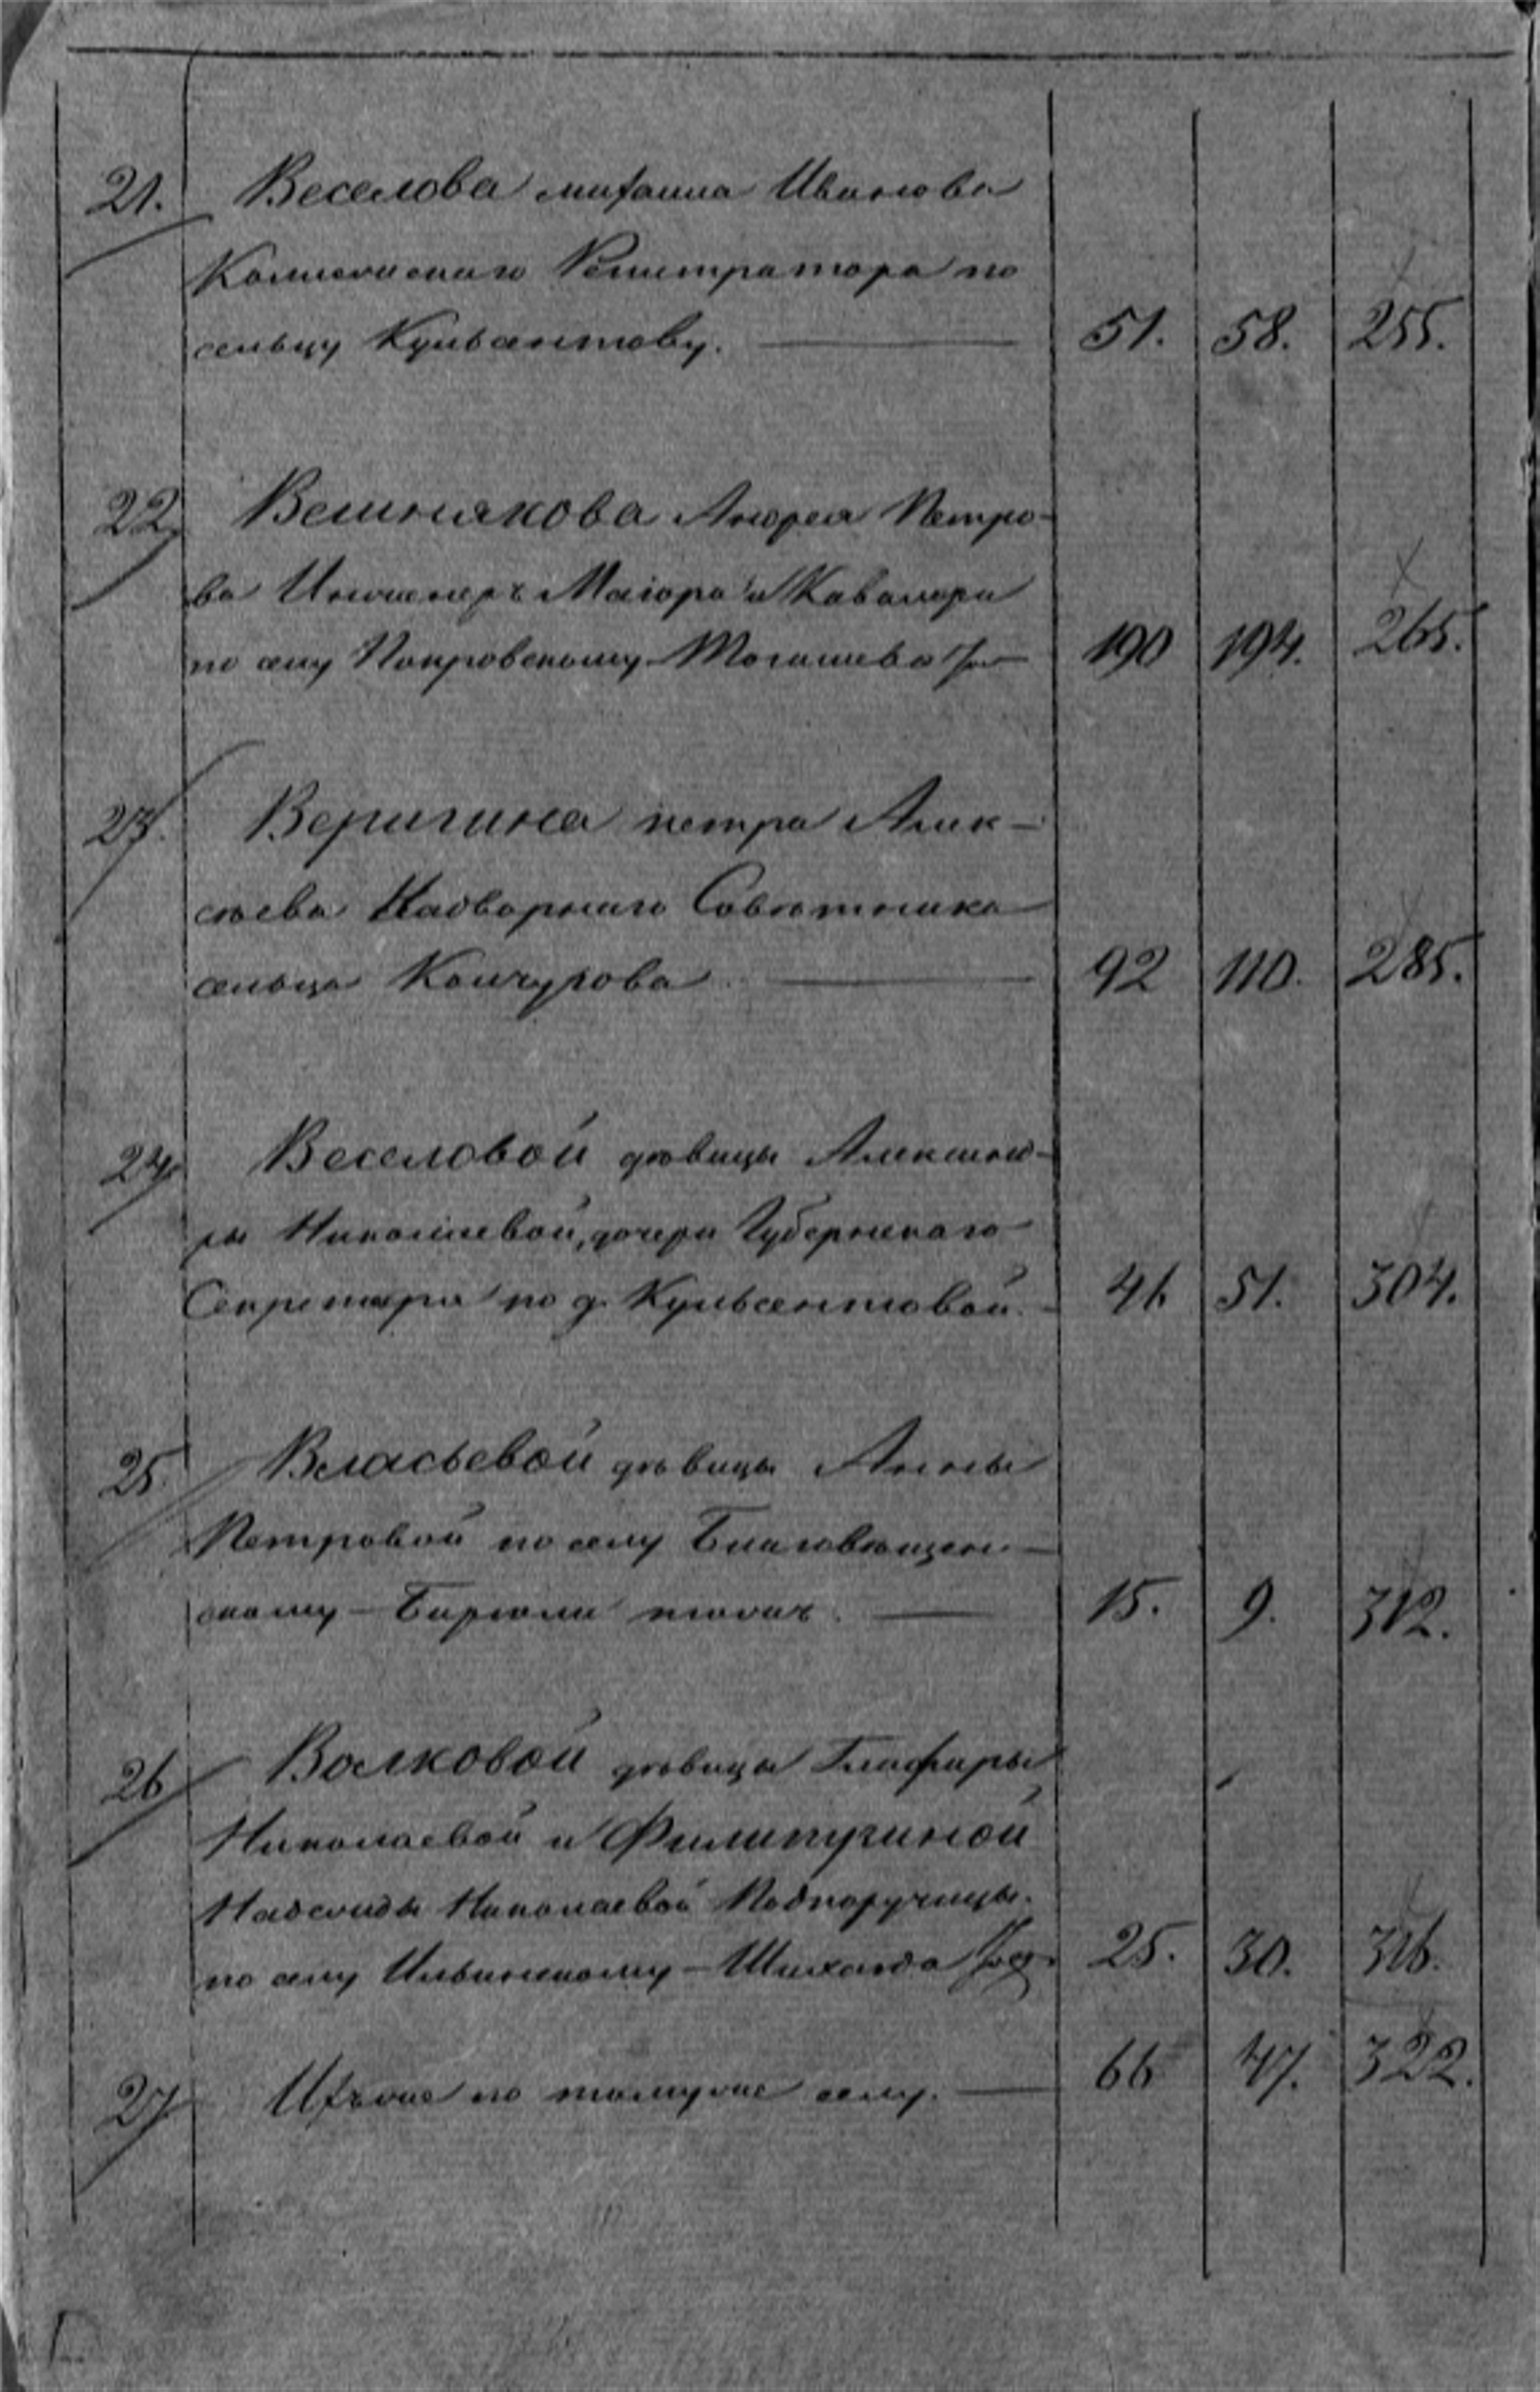 21. Веселова михаила Иванова
Коллежскаго Регистратора по
сельцу Куньвентову. 51. 58. 255.
22. Вешнякова Андрея Петро-
ва Инженеръ Маіора и Кавалера
по селу Покровскому 190 194. 265.
23. Веригина петра Алек-
сѣева Надворнаго Совѣтника
сельца Кончурова 92 110. 285.
24. Веселовой дѣвицы Александ-
ры Николаевой, дочери Губернскаго
Секретаря по д. 46 51. 304.
25. Власьевой дѣвицы Анны
Петровой по селу Благовѣщен-
скому 15. 9. 312.
26 Волковой дѣвицы Глафиры
Николаевой и Филипугиной
Надежды Николаевой Подпоручицы
по селу Ильинскому 25. 30. 316.
27 Ихъже по томуже селу. 66 47. 322.